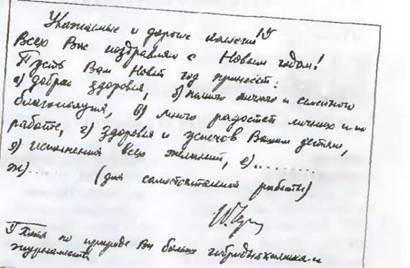 Уважаемые и дорогие коллеги!
Всех Вас поздравляю с Новым годом!
Пусть Вам Новый год принесет:
а) доброе здоровье, б) много личного и семейного
благополучия, в) много радостей личных и по
работе, г) здоровья и успехов Вашим детям,
д) исполнения всех желаний, е).........
ж)..... (для самостоятельной работы)
Хотя по природе Вы больше и
журналисты